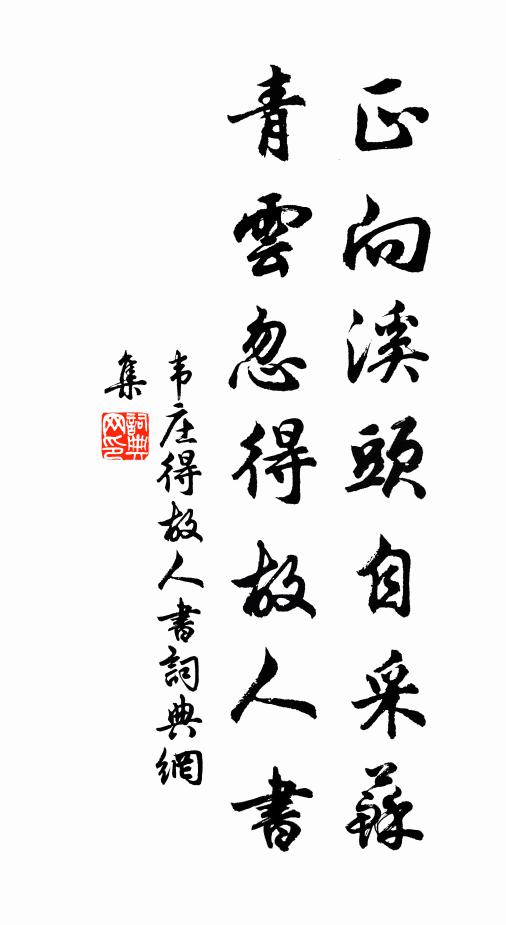 正向溪頭自采蘇
青雲忽得故人書
韦庄得故人書詞典網
集
詞典网印